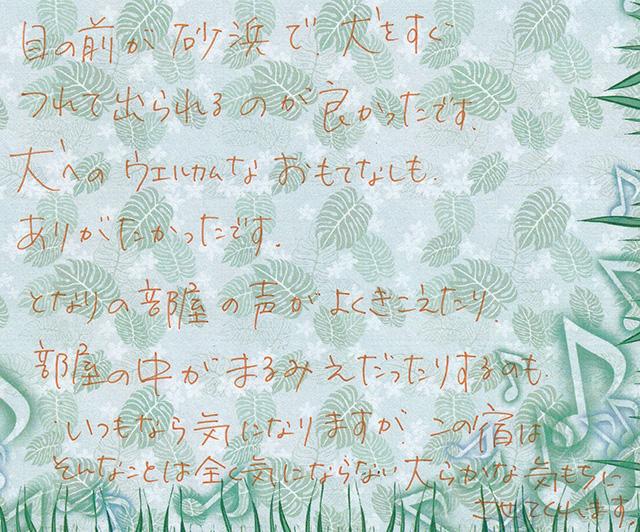 目の前が砂浜で、犬をすぐ
つれて出られるのが良かったです。
犬へのウエルカムなおもてなしも、
ありがたかったです。
となりの部屋の声がよくきこえたり、
部屋の中がまるみえだったりするのも、
いつもなら気になりますが、この宿は
そんなことは全く気にならない大らかな気もちに
させてくれます。